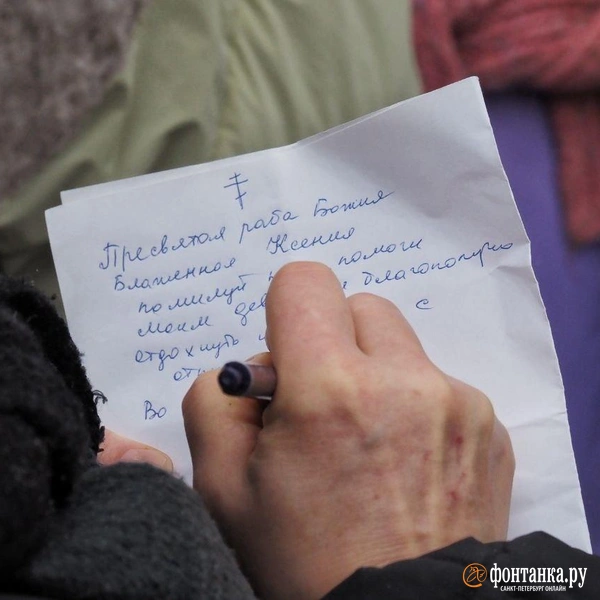 Пресвятая раба Божия
Блаженная Ксения
помилуй помоги
моим благополучно
отдохнуть
с
Во
фонтанка.ру
САНКТ-ПЕТЕРБУРГ ОНЛАЙН